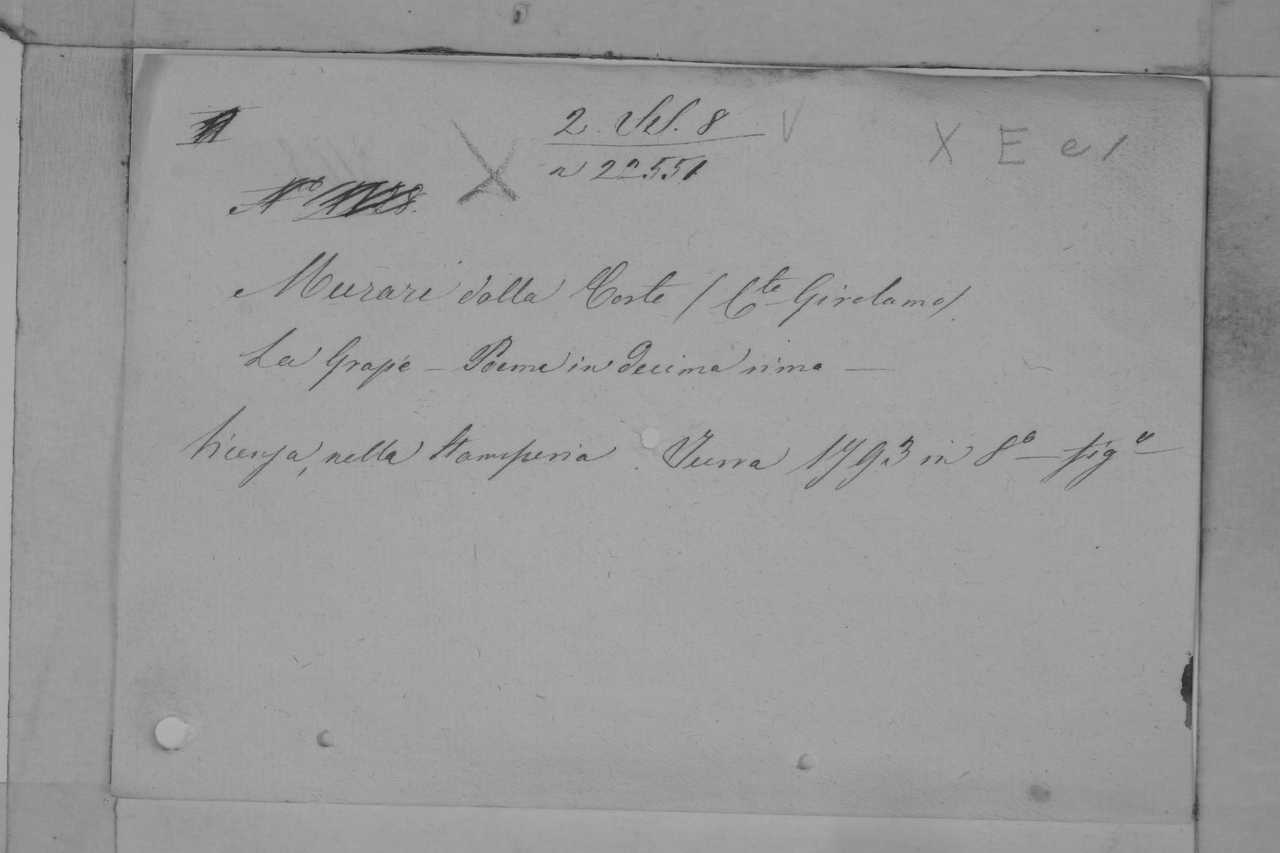 2. Sel. 8 V
X E e 1
n 22551
X
Murari dalla Corte (Cte Girolamo)
La Grazie - Poema in decima rima —
Vicenza, nella Stamperia Turra 1793 in 8o - fig